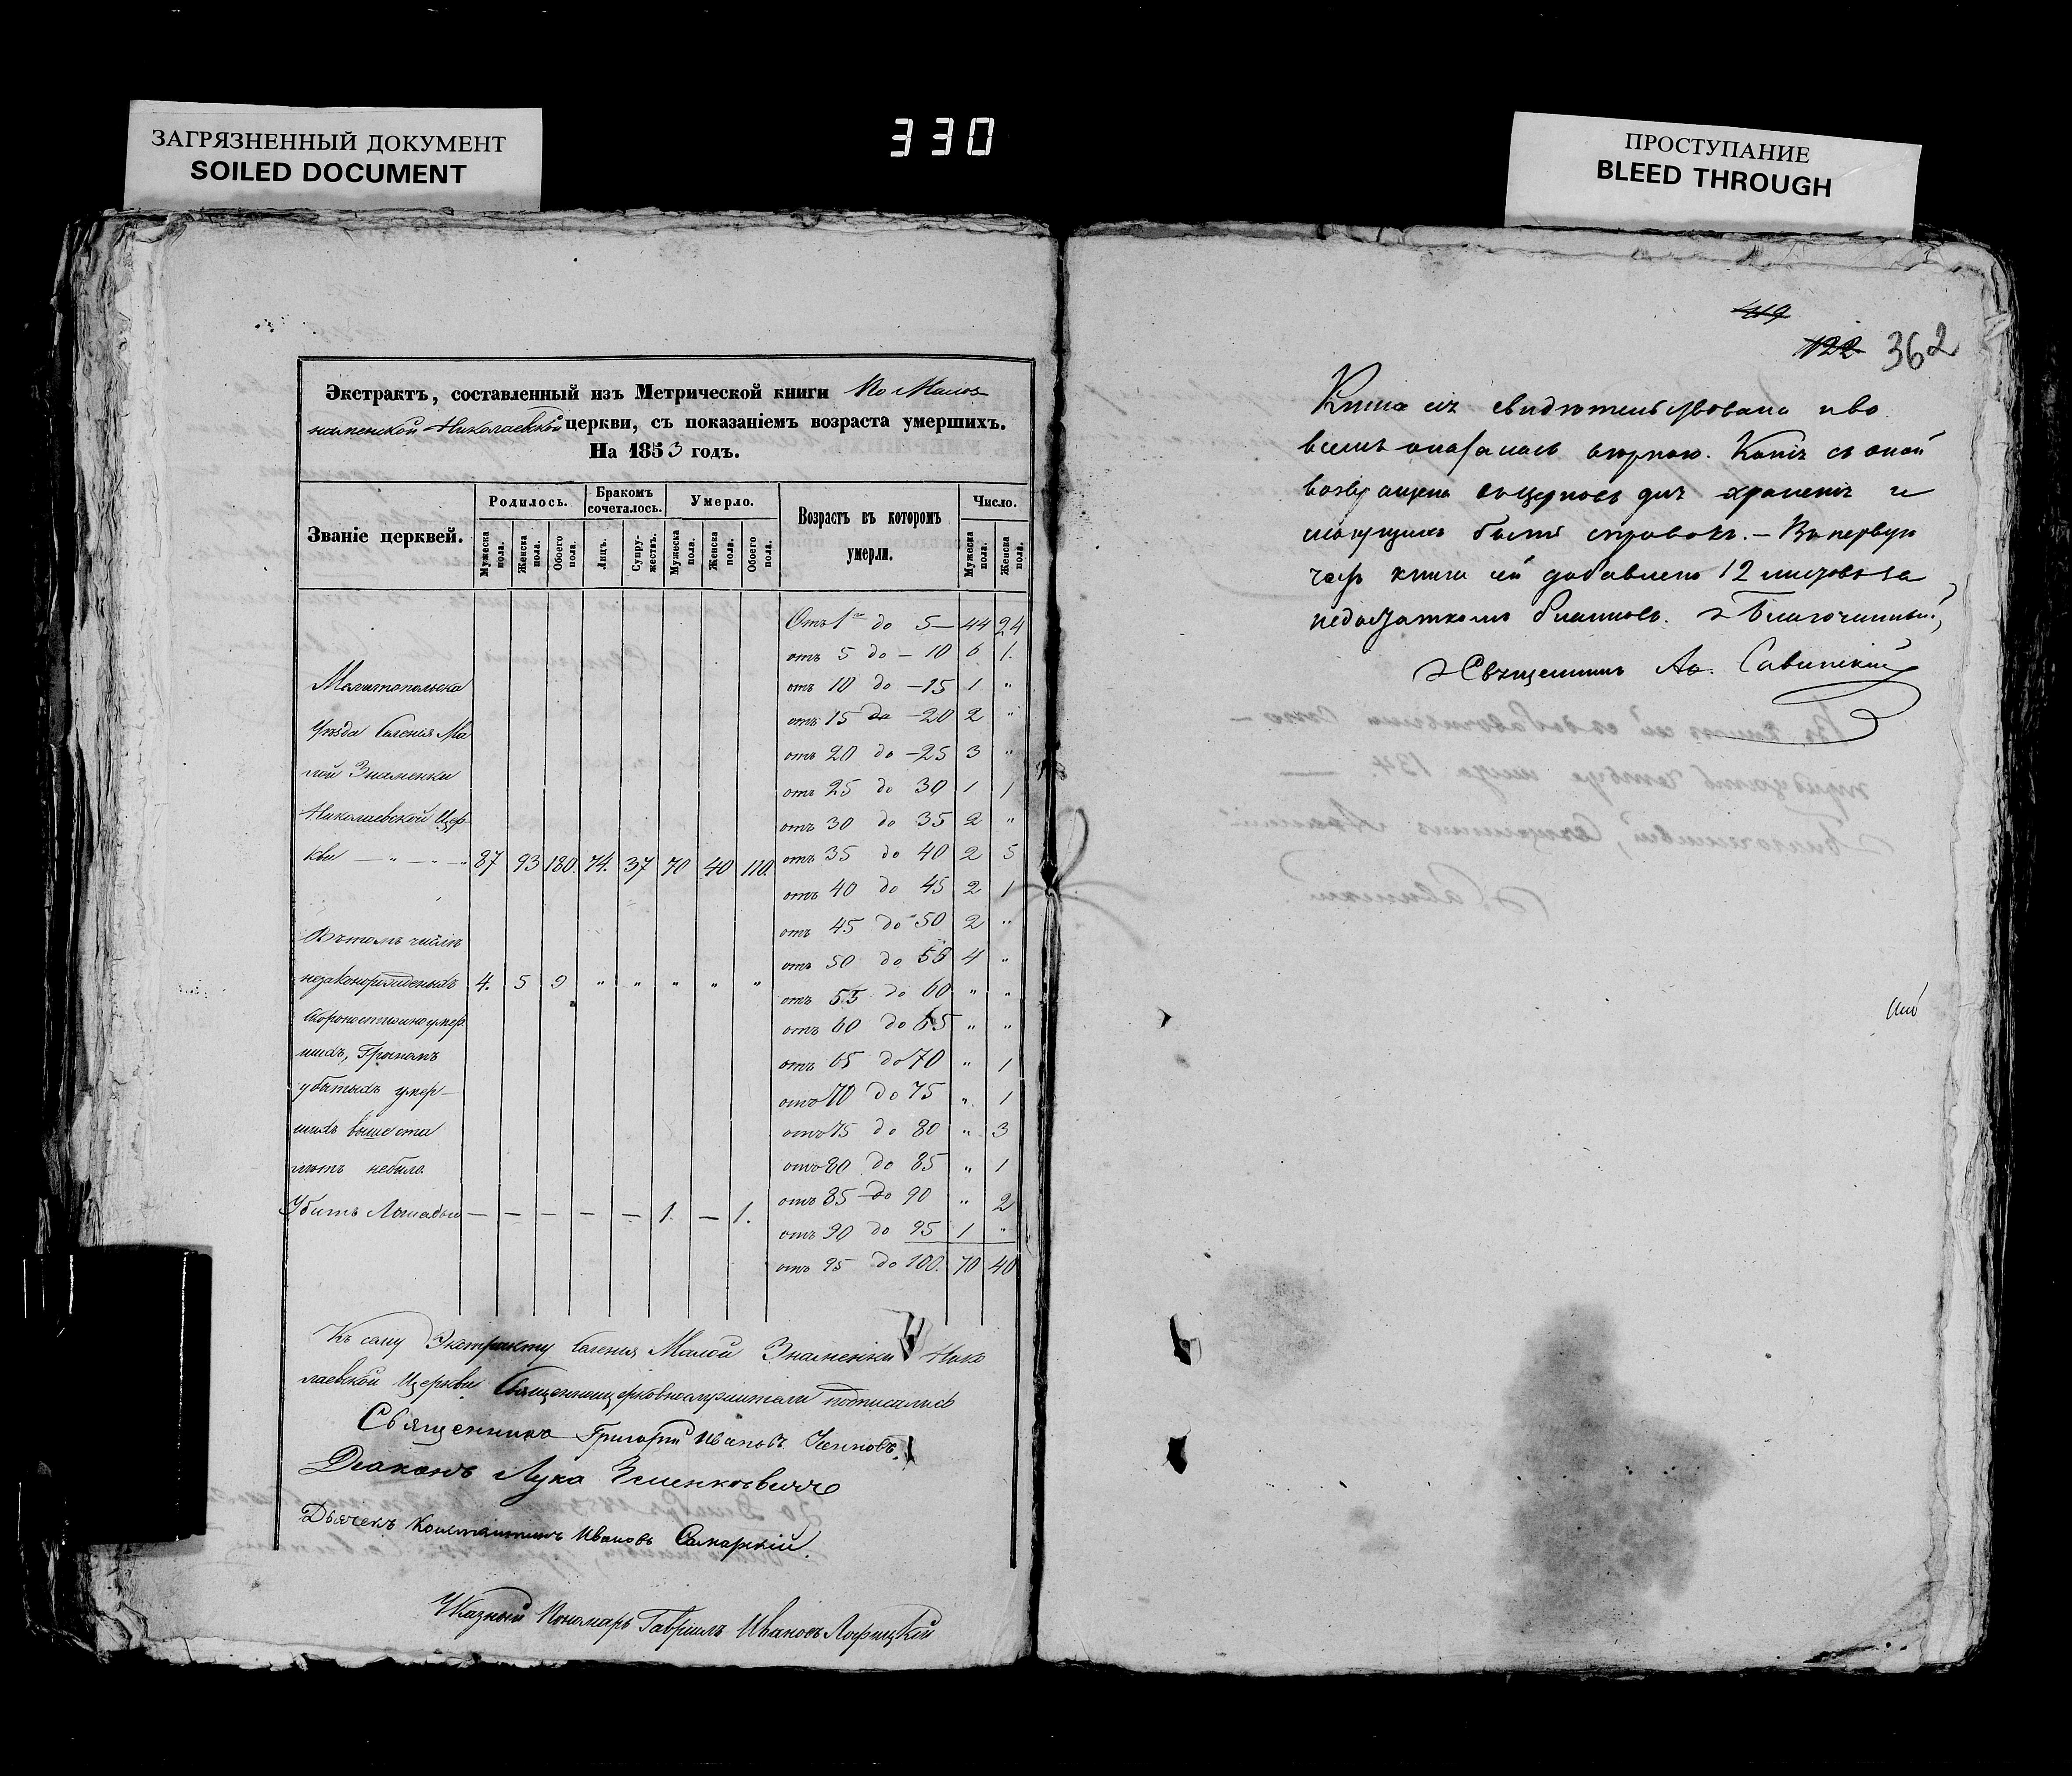 ЗАГРЯЗНЕННЫЙ ДОКУМЕНТ
SOILED DOCUMENT
330
ПРОСТУПАНИЕ
BLEED THROUGH
Экстрактъ, составленный изъ Метрической книги по Малоз-
наменской Николаевской церкви, съ показаніемъ возраста умершихъ.
На 1853 годъ.
Званіе церквей.
Родилось.
Бракомъ сочеталось.
Умерло.
Возрастъ въ которомъ умерли.
Число.
Мужеска пола.
Женска пола.
Обоего пола.
Лицъ.
Супру-жествъ.
Мужеска пола.
Женска пола.
Обоего пола.
Мужеска пола.
Женска пола.
Мелитопольска
Уѣзда Селенія Ма
лой Знаменки
Николаевской Цер
кви — " — " — " 87 93 180. 74. 37 70 40 110.
Въ томъ числѣ
незаконорожденныхъ 4. 5 9 " " " " "
Скоропостижно умер
шихъ, Громомъ
убитыхъ умер-
шихъ выше ста
лѣтъ небыло.
Убитъ Лошадью — — — — — 1. — 1.
Отъ 1го до 5 — 44 24
отъ 5 до — 10 6 1.
отъ 10 до — 15 1 "
отъ 15 до — 20 2 "
отъ 20 до — 25 3 "
отъ 25 до 30 1 1
отъ 30 до 35 2 "
отъ 35 до 40 2 5
отъ 40 до 45 2 1
отъ 45 до 50 2 "
отъ 50 до 55 4 "
отъ 55 до 60 " "
отъ 60 до 65 " "
отъ 65 до 70 " 1
отъ 70 до 75 " 1
отъ 75 до 80 " 3
отъ 80 до 85 " 1
отъ 85 до 90 " 2
отъ 90 до 95 1 "
отъ 95 до 100. 70 40
Къ сему Экстракту Селенія Малой Знаменки Нико
лаевской Церкви Священноцерковнослужители подписались
Священникъ Григорій Ивановъ
Діаконъ Лука
Дьячекъ Константинъ Ивановъ Самарскій.
Указный Пономарь Гавріилъ Ивановъ
419
122 362
Книга сія свидѣтельствована и во
всемъ оказалась вѣрною. Копія съ оной
возвращена въ церковь для храненія и
могущихъ быть справокъ. — Въ первую
часть книги сей добавлено 12 листовъ за
недостаткомъ бланковъ. Благочинный,
Священникъ Ав. Савинскій